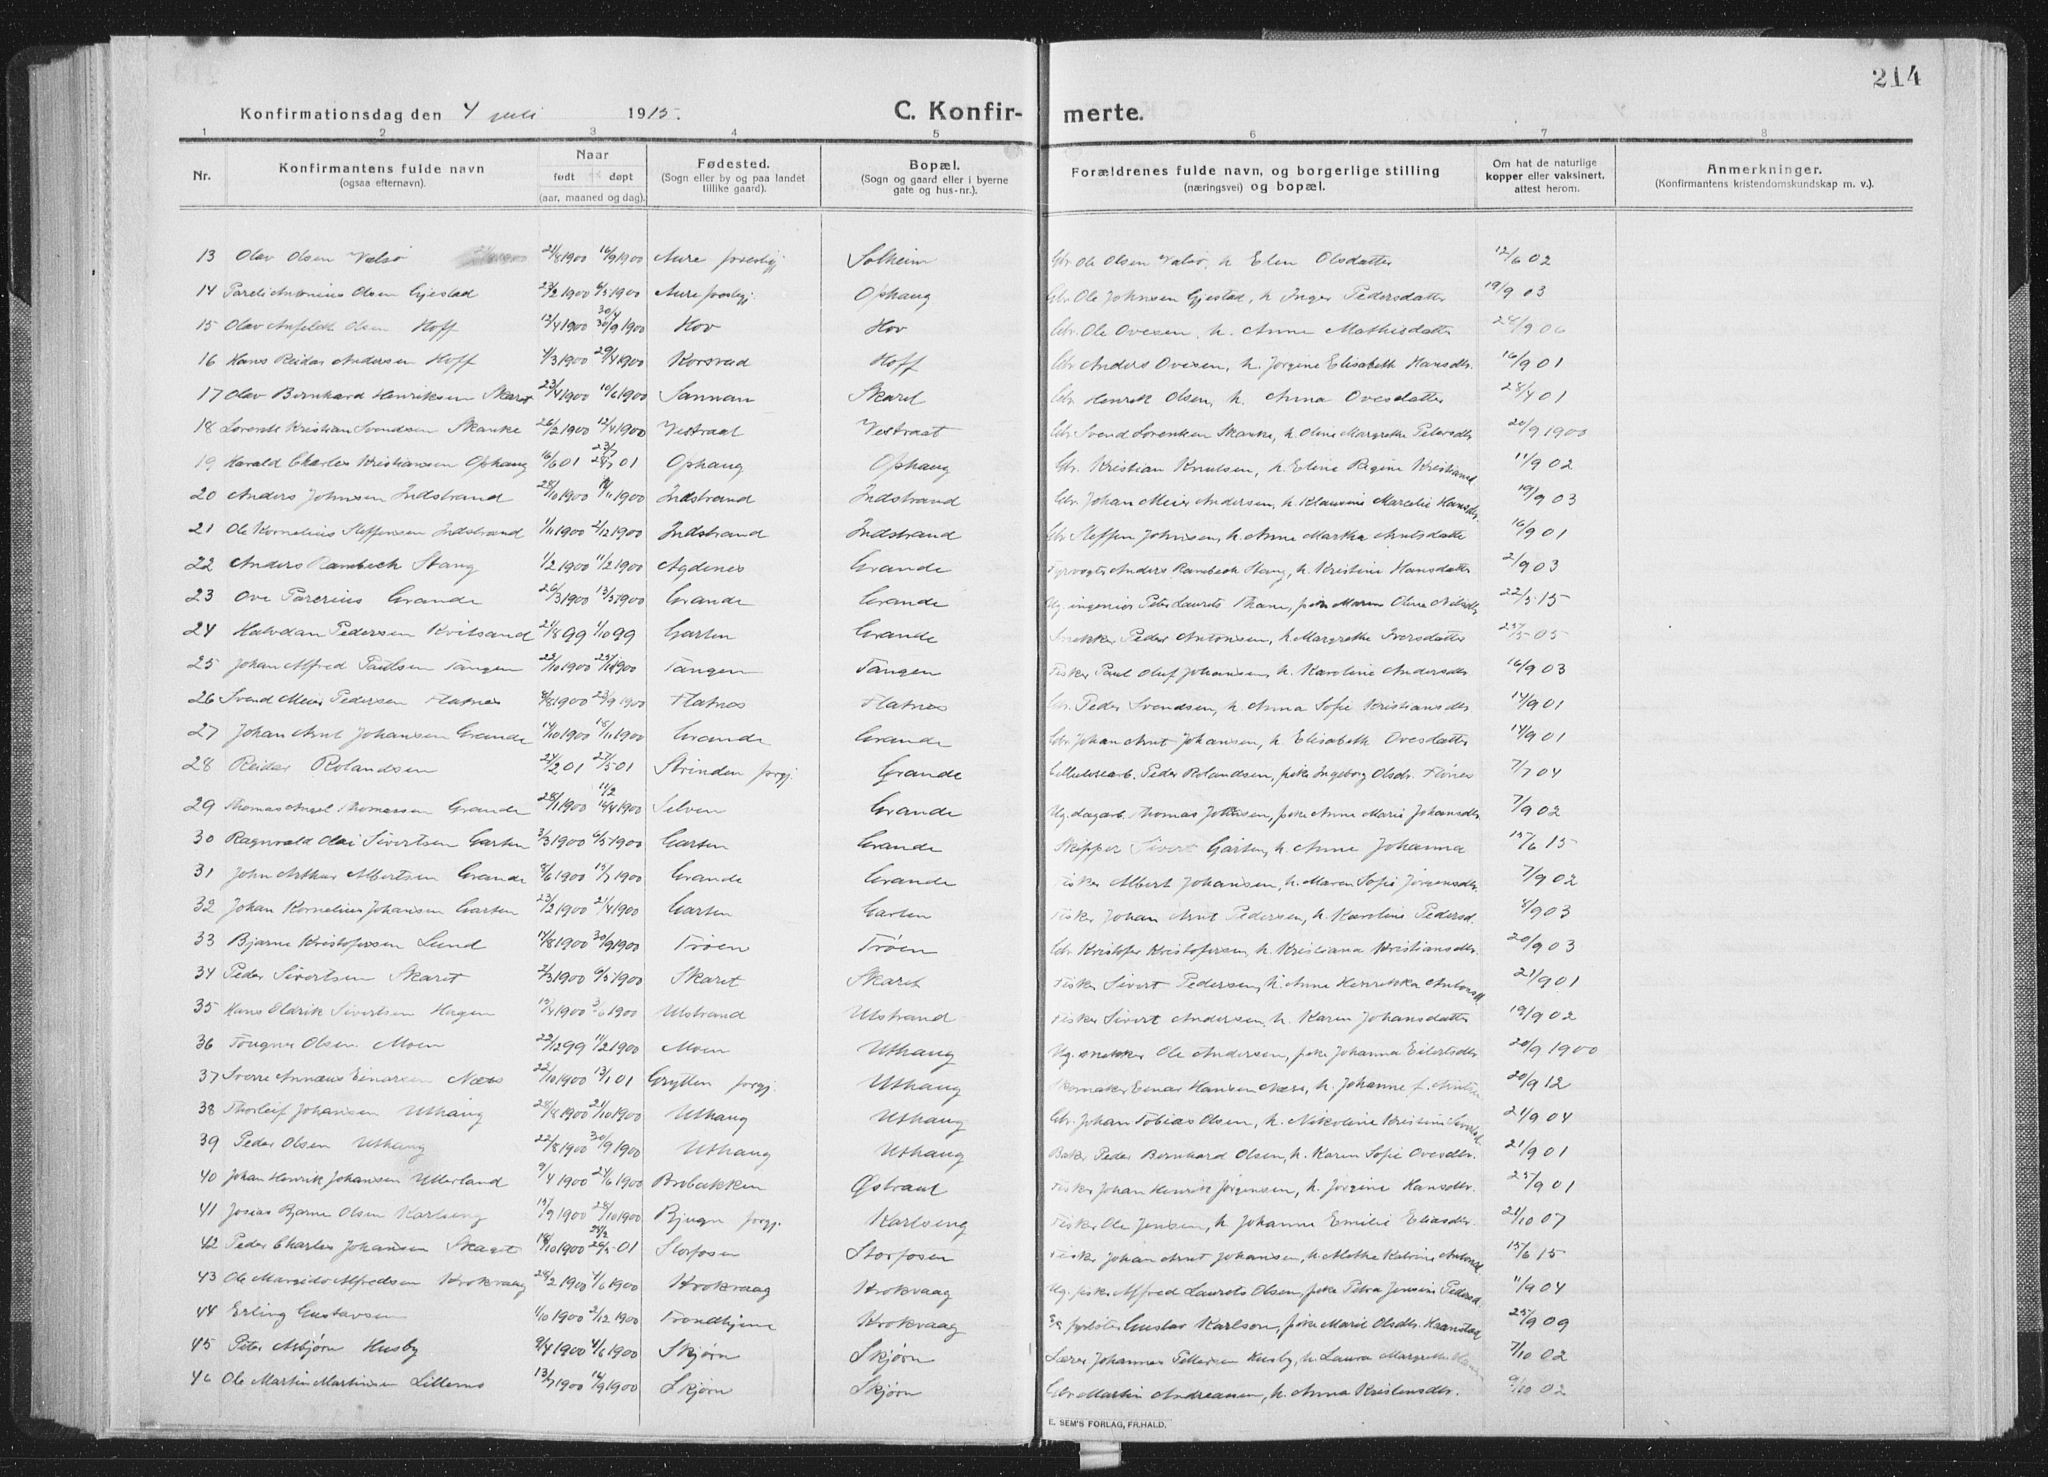 214
Konfirmationsdag den 4 juli 1915. C. Konfirmerte.
1 2 3 4 5 6 7 8
Nr. Konfirmantens fulde navn (ogsaa efternavn). Naar født døpt (aar, maaned og dag). Fødested. (Sogn eller by og paa landet tillike gaard). Bopæl. (Sogn og gaard eller i byerne gate og hus-nr.). Forældrenes fulde navn, og borgerlige stilling (næringsvei) og bopæl. Om hat de naturlige kopper eller vaksinert, attest herom. Anmerkninger. (Konfirmantens kristendomskundskap m. v.).
13 Olav Olsen Valsø 24/8 1900 16/9 1900 Aure Solheim Gbr. Ole Olsen Valsø, h. Elen Olsdatter 12/6 02
14 Olsen Gjestad 23/2 1900 6/5 1900 Aure Ophaug Gbr. Ole Johnsen Gjestad, h. Inger Pedersdatter 19/9 03
15 Olav Olsen Hoff 12/4 1900 30/9 1900 Hov Hov Gbr. Ole Ovesen, h. Anne Mathisdatter 28/9 06
16 Hans Reidar Andersen Hoff 4/3 1900 29/4 1900 Korsvad Hoff Gbr. Anders Ovesen, h. Jørgine Elisabeth Hansdtr. 16/9 01
17 Olav Bernhard Henriksen Skaret 23/4 1900 10/6 1900 Sannan Skaret Gbr. Henrik Olsen, h. Anna Ovesdatter 28/4 01
18 Lorents Kristian Svendsen Skanke 26/2 1900 12/4 1900 Vestraat Vestraat Gbr. Svend Lorentsen Skanke, h. Oline Margrethe Petersdtr. 20/9 1900
19 Harald Charles Kristiansen Ophaug 16/6 01 Ophaug Ophaug Gbr. Kristian Knutsen, h. Eline Regine Kristiansd. 11/9 02
20 Anders Johnsen Indstrand 28/10 1900 1900 Indstrand Indstrand Gbr. Johan Meier Andersen, h. Klausine Marcelie Hansdtr. 19/9 03
21 Ole Kornelius Steffensen Indstrand 1/11 1900 2/12 1900 Indstrand Indstrand Gbr. Steffen Johnsen, h. Anne Martha Arntsdatter 16/9 01
22 Anders Rambech Stang 1/2 1900 11/2 1900 Agdenes Grande Fyrvogter Anders Rambech Stang, h. Kristine Hansdatter 2/9 03
23 Ove Parerius Grande 26/3 1900 13/5 1900 Grande Grande Ug. ingeniør Peter Laurits Thams, pike Maren Oline Nilsdtr. 22/5 15
24 Halvdan Pedersen Kvitsand 24/8 99 1/10 99 Garten Grande Snekker Peder Antonsen, h. Margrethe Iversdatter 25/5 05
25 Johan Alfred Paulsen Tangen 22/10 1900 25/11 1900 Tangen Tangen Fisker Paul Oluf Johansen, h. Karoline Andersdtr. 16/9 03
26 Svend Meier Pedersen Flatnes 8/8 1900 23/9 1900 Flatnes Flatnes Gbr. Peder Svendsen, h. Anna Sofie Kristiansdtr. 14/9 01
27 Johan Arnt Johansen Grande 14/10 1900 18/11 1900 Grande Grande Gbr. Johan Arnt Johansen, h. Elisabeth Ovesdatter 14/9 01
28 Reidar Rolandsen 24/2 01 27/5 01 Strinden Grande Peder Rolandsen, pike Ingeborg Olsdr. 7/7 04
29 Thomas Thomassen Grande 28/1 1900 11/2 16/4 1900 Selven Grande Ug. dagarb. Thomas, pike Anne Marie Johansdtr. 7/9 02
30 Ragnvald Olai Sivertsen Garten 3/3 1900 6/5 1900 Garten Grande Skipper Sivert Garten, h. Anne Johanna 15/6 15
31 John Arthur Albertsen Grande 8/6 1900 15/7 1900 Grande Grande Fisker Albert Johansen, h. Maren Sofie Jørgensdtr. 7/9 02
32 Johan Kornelius Johansen Garten 23/2 1900 21/4 1900 Garten Garten Fisker Johan Arnt Pedersen, h. Karoline Pedersd. 8/9 03
33 Bjarne Kristofersen Lund 14/8 1900 30/9 1900 Trøen Trøen Gbr. Kristofer Kristofersen, h. Kristiana Kristiansdtr. 20/9 03
34 Peder Sivertsen Skaret 2/3 1900 6/5 1900 Skaret Skaret Fisker Sivert Pedersen, h. Anne Henrikka 21/9 01
35 Hans Eldrik Sivertsen Hagen 19/4 1900 3/6 1900 Ulstrand Ulstrand Fisker Sivert Andersen, h. Karen Johansdatter 19/9 02
36 Olsen Moen 22/12 99 11/2 1900 Moen Uthaug Ug. snekker Ole Andersen, pike Johanna Eilertsdtr. 20/9 1900
37 Sverre Annæus Einarsen Næss 22/10 1900 13/1 01 Grytten Uthaug Skomaker Einar Hansen Næss, h. Johanne f. 20/9 12
38 Thorleif Johansen Uthaug 28/8 1900 21/10 1900 Uthaug Uthaug Gbr. Johan Tobias Olsen, h. Nikoline Kristine 21/9 04
39 Peder Olsen Uthaug 22/8 1900 30/9 1900 Uthaug Uthaug Baker Peder Bernhard Olsen, h. Karen Sofie Ovesdtr. 21/9 01
40 Johan Henrik Johansen Utterland 9/4 1900 24/6 1900 Brobakken Østraat Fisker Johan Henrik Jørgensen, h. Jørgine Hansdtr. 25/9 01
41 Josias Bjarne Olsen Karlseng 15/9 1900 28/10 1900 Bjugn Karlseng Fisker Ole Jensen, h. Johanne Emilie Eliasdtr. 21/10 07
42 Peder Charles Johansen Skaget 18/10 1900 26/5 01 Storfosen Storfosen Fisker Johan Arnt Johansen, h. 15/6 15
43 Ole Alfredsen Krokvaag 28/2 1900 4/6 1900 Krokvaag Krokvaag Ug. fisker Alfred Laurits Olsen, pike Petra Jensine Pedersd. 11/9 04
44 Erling Gustavsen 1/10 1900 2/12 1900 Trondhjem Krokvaag fyrbøter Gustav Karlson, pike Marie Olsdtr. 25/9 09
45 Peter Asbjørn Husby 9/4 1900 4/6 1900 Skjørn Skjørn Lærer Johannes Pettersen Husby, h. Laura Margrethe 7/10 02
46 Ole Martin Martinsen Lillemo 13/7 1900 16/9 1900 Skjørn Skjørn Gbr. Martin Andreassen, h. Anna Kristensdtr. 9/10 02
E. SEM'S FORLAG, FR.HALD.